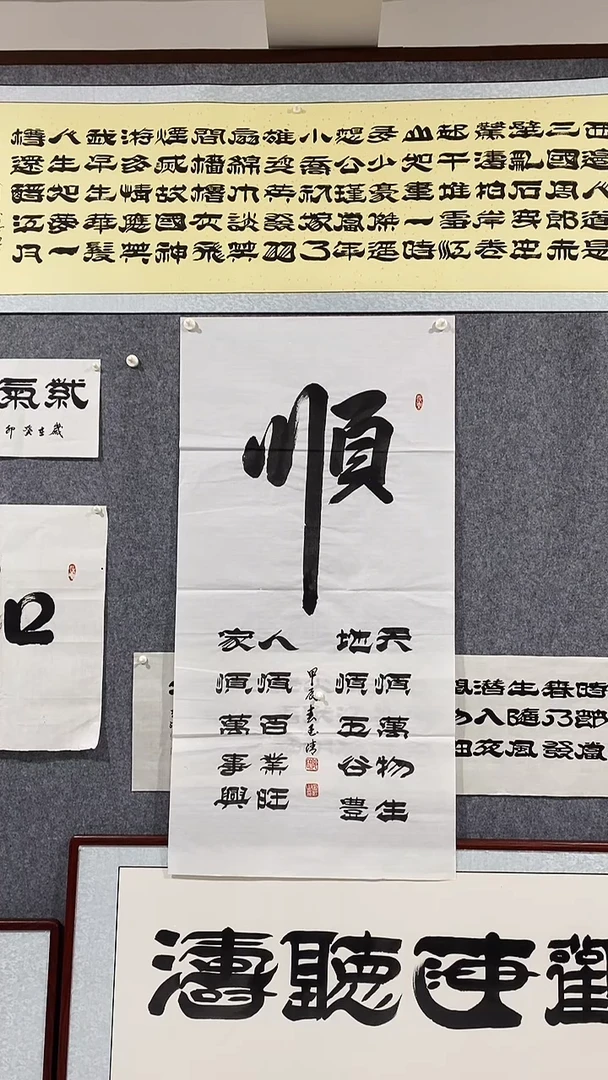 西邊人道是
三國周郎赤
壁亂石穿空
驚濤拍岸卷
起千堆雪江
山如畫一時
多少豪傑遙
想公瑾當年
小喬初嫁了
雄姿英發羽
扇綸巾談笑
間檣櫓灰飛
煙滅故國神
游多情應笑
我早生華髮
人生如夢一
樽還酹江月
紫氣
歲在癸卯
順
天順萬物生
地順五谷豐
人順百業旺
家順萬事興
甲辰春
時節當
春乃發
生隨風
潛入夜
物細
觀海聽濤